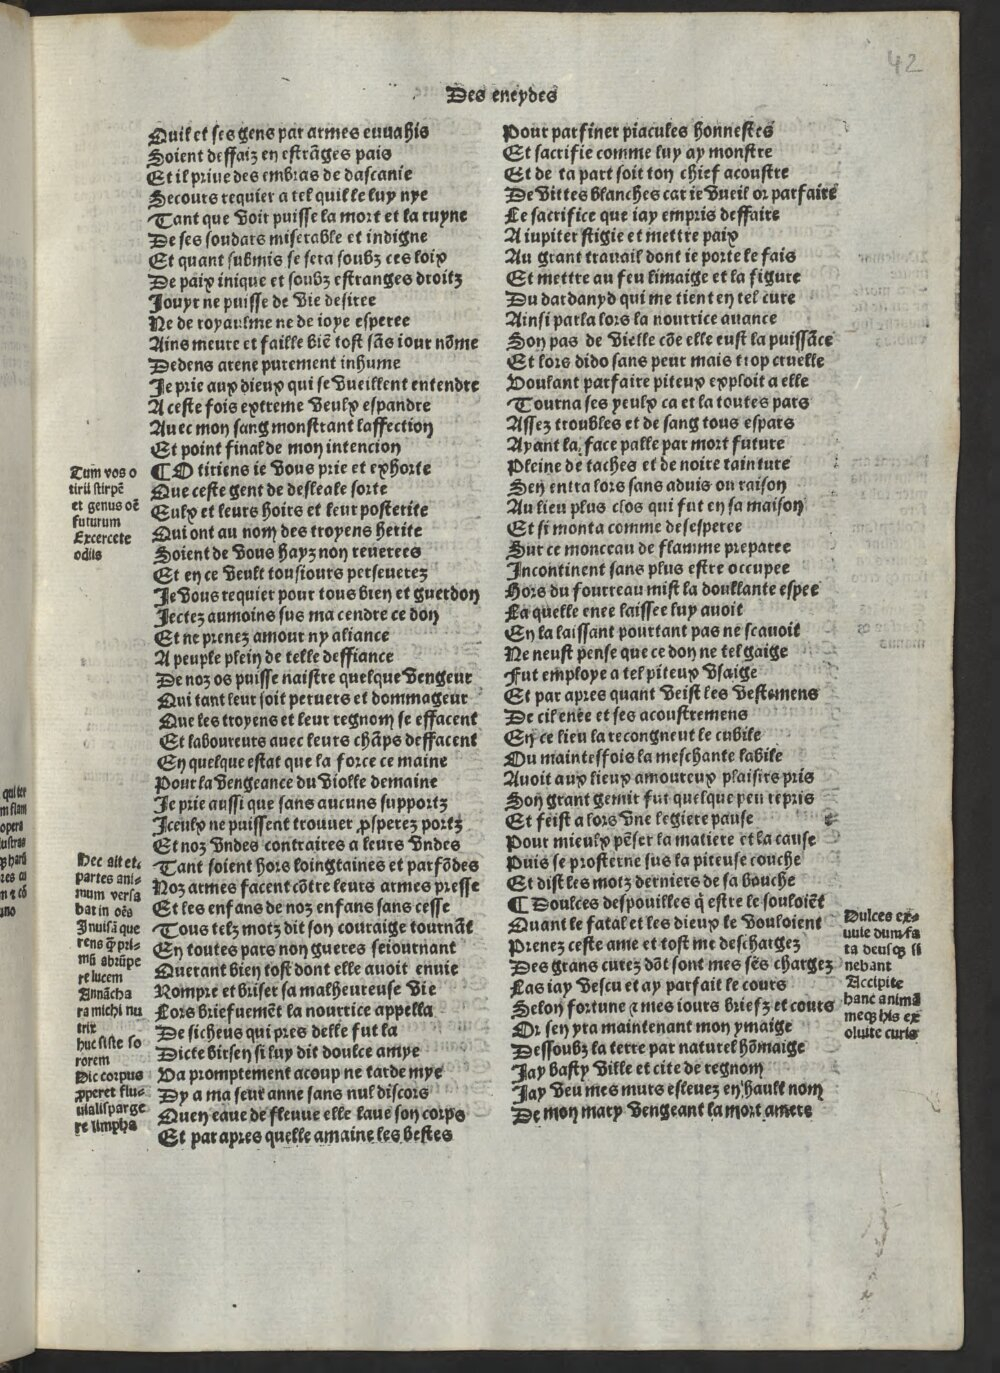 42
Des eneydes
Quil et ses gens par armes enuahis
Soient deffaiz en estrãges pais
Et il priue des embras de dascanie
Secours requier a tel quil le luy nye
Tant que voir puisse la mort et la ruyne
De ses soudars miserable et indigne
Et quant submis se sera soubz ces loix
De paix inique et soubz estranges droitz
Jouyr ne puisse de vie desiree
Ne de royaulme ne de ioye esperee
Ains meure et faille biẽ tost sãs iour nõme
Dedens arene purement inhume
Je prie aux dieux qui se vueillent entendre
A ceste fois extreme veulx espandre
Auec mon sang monstrant laffection
Et point final de mon intencion
¶ O tiriens ie vous prie et exhorte
Que ceste gent de desleale sorte
Eulx et leurs hoirs et leur posterite
Qui ont au nom des troyens herite
Soient de vous hayz non reuerees
Et en ce veult tousiours perseuerez
Je vous requier pour tous bien et guerdon
Jectez aumoins sus ma cendre ce don
Et ne prenez amour ny aliance
A peuple plein de telle deffiance
De noz os puisse naistre quelque vengeur
Qui tant leur soit peruers et dommageur
Que les troyens et leur regnom se effacent
Et laboureurs auec leurs chãps deffacent
En quelque estat que la force ce maine
Pour la vengeance du violle demaine
Je prie aussi que sans aucuns supportz
Iceulx ne puissent trouuer ꝓsperez portz
Et noz vndes contraires a leurs vndes
Tant soient hors loingtaines et parfõdes
Noz armes facent cõtre leurs armes presse
Et les enfans de noz enfans sans cesse
Tous telz motz dit son couraige tournãt
En toutes pars non gueres seiournant
Querant bien tost dont elle auoit enuie
Rompre et briser sa malheureuse vie
Lors briefuemẽt la nourrice appella
De sicheus qui pres delle fut la
Dicte birsen si luy dit doulce amye
Va promptement acoup ne tarde mye
Dy a ma seur anne sans nul discors
Quen eaue de fleuue elle laue son corps
Et par apres quelle amaine les bestes
Tum vos o
tirii stirpẽ
et genus oẽ
futurum
Excercete
odiis
Hec ait et
partes ani-
mum versa
bat in oẽs
Inuisã que
rens q̃ pri-
mũ abrũpe
re lucem
Annã cha
ra michi nu
trix
huc siste so
rorem
Dic corpus
ꝓperet flu-
uialisparge
re limpha
Pour parfiner piacules honnestes
Et sacrifie comme luy ay monstre
Et de ta part soit ton chief acoustre
De vittes blanches car ie vueil or parfaire
Le sacrifice que iay empris deffaire
A iupiter stigie et mettre paix
Au grant trauail dont ie porte le fais
Et mettre au feu limaige et la figure
Du dardanyd qui me tient en tel cure
Ainsi parla lors la nourrice auance
Son pas de vielle cõe elle eust la puissãce
Et lors dido sans peur mais trop cruelle
Voulant parfaire piteux exploit a elle
Tourna ses yeulx ca et la toutes pars
Assez troubles et de sang tous espars
Ayant la face palle par mort future
Pleine de taches et de noire tainture
Sen entra lors sans aduis ou raison
Au lieu plus clos qui fut en sa maison
Et si monta comme desesperee
Sur ce monceau de flamme preparee
Incontinent sans plus estre occupee
Hors du fourreau mist la doullante espee
La quelle enee laissee luy auoit
En la laissant pourtant pas ne scauoit
Ne neust pense que ce don ne tel gaige
Fut employe a tel piteux vsaige
Et par apres quant veist les vestemens
De cil enee et ses acoustremens
En ce lieu la recongneut le cubile
Ou maintesfois la meschante labile
Auoit aux lieux amoureux plaisirs pris
Son grant gemir fut quelque peu repris
Et feist a lors vne legiere pause
Pour mieulx pẽser la matiere et la cause
Puis se prosterne sus la piteuse couche
Et dist les motz derniers de sa bouche
¶ Doulces despouilles q̃ estre le souloiẽt
Quant le fatal et les dieux le vouloient
Prenez ceste ame et tost me deschargez
Des grans curez dõt sont mes sẽs chargez
Las iay vescu et ay parfait le cours
Selon fortune ⁊ mes iours briefz et cours
Or sen yra maintenant mon ymaige
Dessoubz la terre par naturel hõmaige
Jay basty ville et cite de regnom
Jay veu mes murs esleuez en hault nom
De mon mary vengeant la mort amere
Dulces ex-
uuie dum fa
ta deusqꝫ si
nebant
Accipite
hanc animã
meqꝫ his ex
oluite curis